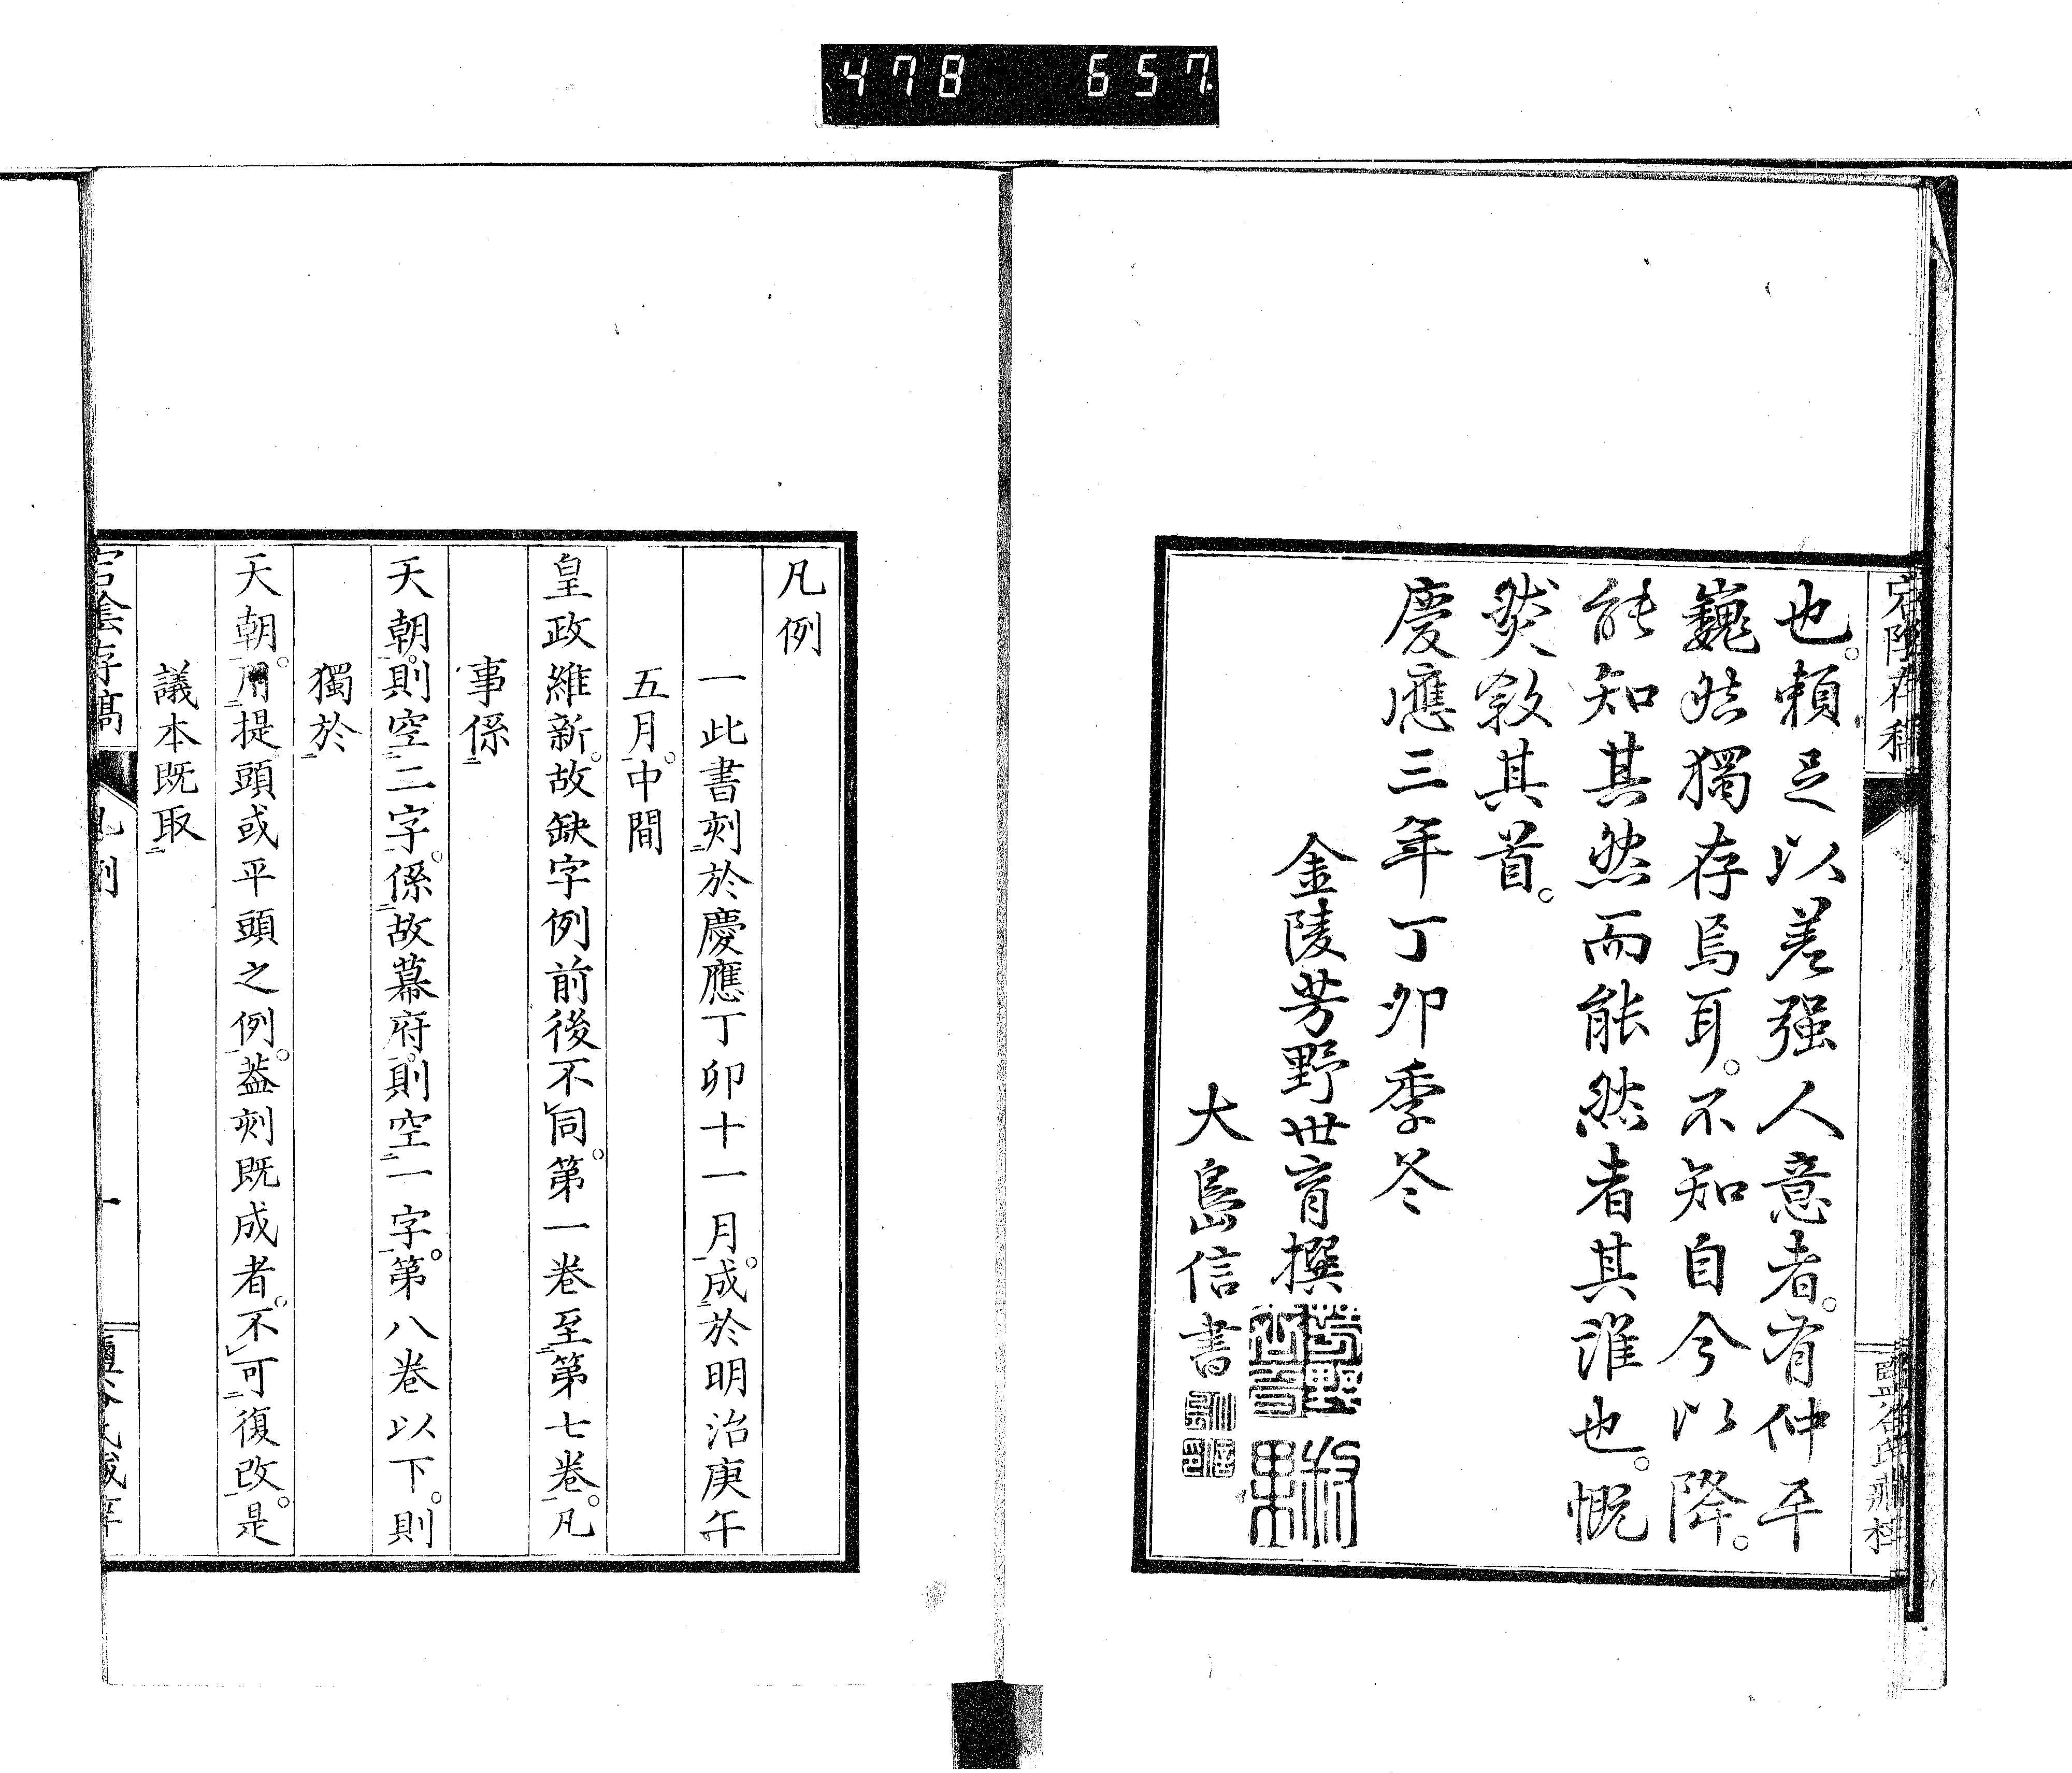 478 657
宕陰存稿
鹽谷氏藏梓
也。頼足以差强人意者。有仲平
巍然獨存焉耳。不知自今以降。
能知其然而能然者其誰也。慨
然敘其首。
慶應三年丁卯季冬
金陵芳野世育撰
大島信書
凡例
一此書刻於慶應丁卯十一月。成於明治庚午
五月。中間
皇政維新。故缺字例前後不同。第一卷至第七卷。凡
事係
天朝。則空二字。係故幕府。則空一字。第八卷以下。則
獨於
天朝。用提頭或平頭之例。葢刻既成者。不可復改。是
議本既取
宕陰存稿
凡例
一
鹽谷氏藏梓